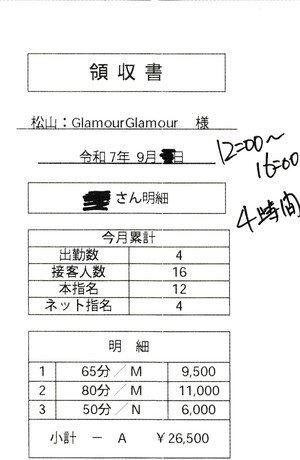 領収書
松山：GlamourGlamour 様
令和7年 9月 日
12:00～
16:00
4時間
さん明細
今月累計
出勤数 4
接客人数 16
本指名 12
ネット指名 4
明 細
1 65分／M 9,500
2 80分／M 11,000
3 50分／N 6,000
小計 － A ￥26,500